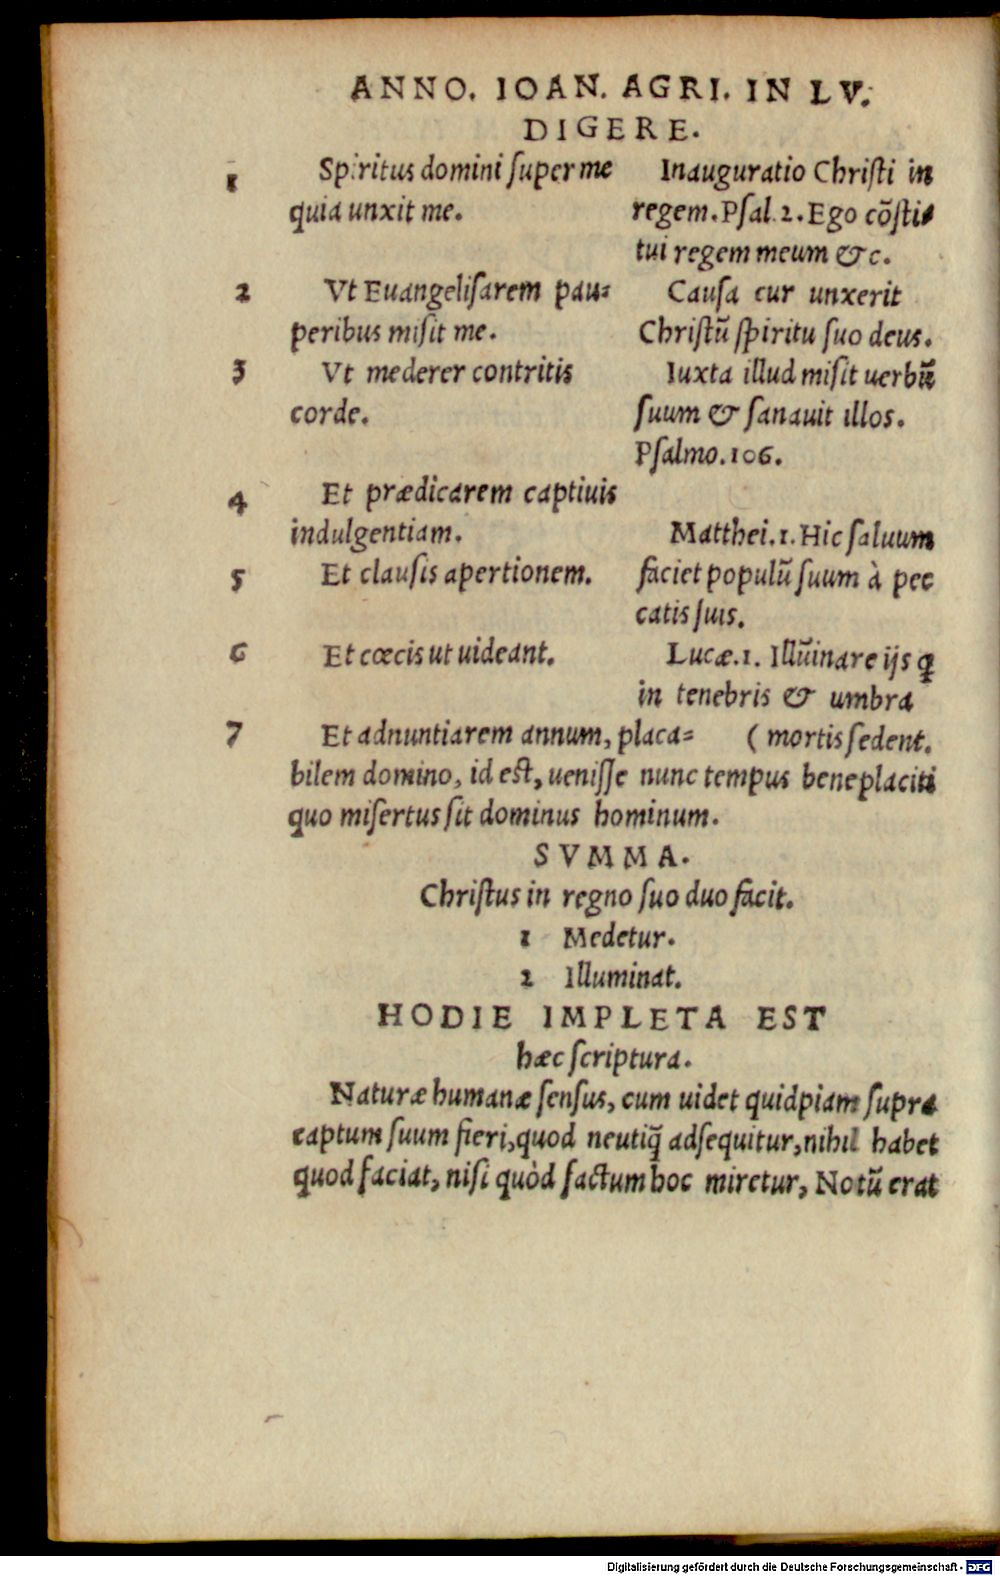 ANNO. IOAN. AGRI. IN LV.
DIGERE.
1 Spiritus domini ſuper me
quia unxit me.
Inauguratio Chriſti in
regem. Pſal. 2. Ego cõſti-
tui regem meum & c.
2 Vt Euangeliſarem pau=
peribus miſit me.
Cauſa cur unxerit
Chriſtũ ſpiritu ſuo deus.
3 Vt mederer contritis
corde.
Iuxta illud miſit uerbũ
ſuum & ſanauit illos.
Pſalmo. 106.
4 Et prædicarem captiuis
indulgentiam.
5 Et clauſis apertionem.
Matthei. 1. Hic ſaluum
faciet populũ ſuum à pec
catis ſuis.
6 Et cœcis ut uideant.
Lucæ. 1. Illũinare ijs q̃
in tenebris & umbra
(mortis ſedent.
7 Et adnuntiarem annum, placa=
bilem domino, id eſt, ueniſſe nunc tempus beneplaciti
quo miſertus ſit dominus hominum.
SVMMA.
Chriſtus in regno ſuo duo facit.
1 Medetur.
2 Illuminat.
HODIE IMPLETA EST
hæc ſcriptura.
Naturæ humanæ ſenſus, cum uidet quidpiam ſupra
captum ſuum fieri, quod neutiq̃ adſequitur, nihil habet
quod faciat, niſi quòd factum hoc miretur, Notũ erat
Digitalisierung gefördert durch die Deutsche Forschungsgemeinschaft - DFG